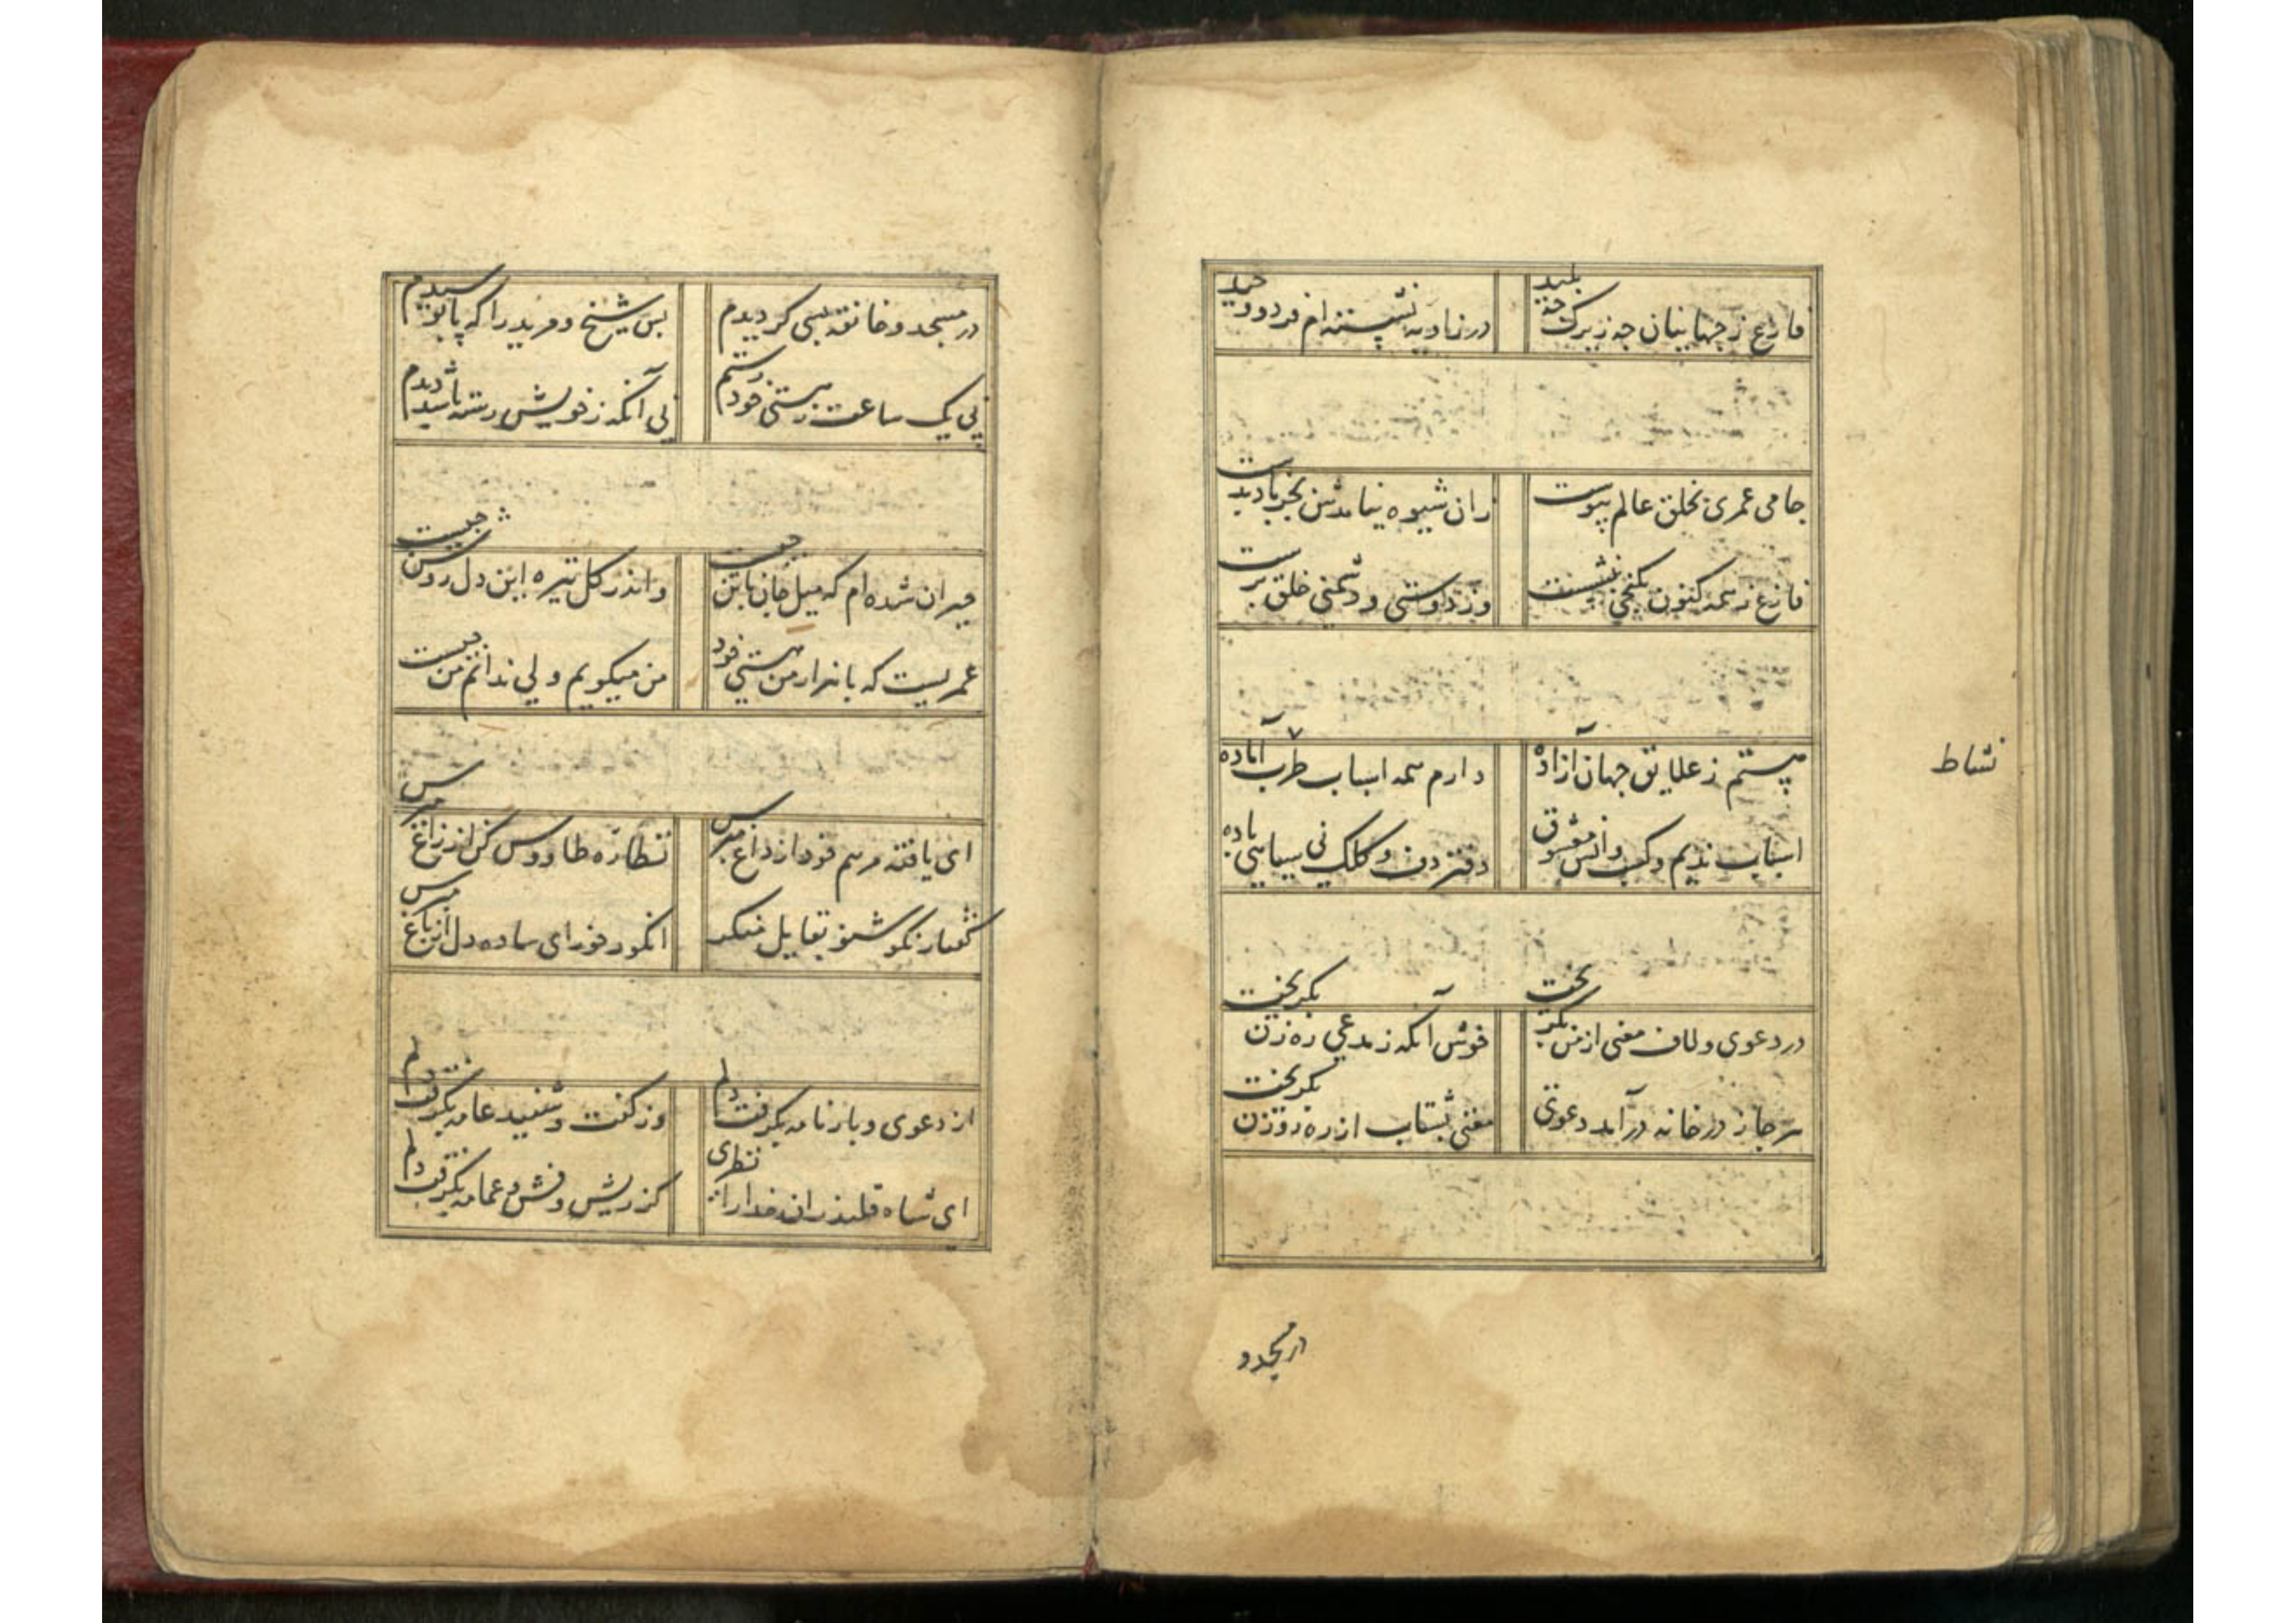 فارغ ز جهانیان چه زیرک چه بلید
در زاویه نشسته ام فرد و وحید
جامی عمری بخلق عالم پیوست
زان شیوه نیامدش بجز باد بدست
فارغ ز همه کنون بکنجی بنشست
وز دوستی و دشمنی خلق برست
هستم ز علایق جهان آزاده
دارم همه اسباب طرب آماده
اسباب ندیم و کتب وانس معشوق
دفتر دف و کلک نی سیاهی باده
نشاط
در دعوی و لاف معنی از من بگریخت
خوش آنکه ز مدعی ره زن بگریخت
هر جا ز در خانه درآمد دعوی
معنی بشتاب از ره روزن بگریخت
در مسجد و
در مسجد و خانقه بسی کردیدم
بس شیخ و مرید را که پا بوسیدم
نی یک ساعت ز هستی خود رستم
نی آنکه ز خویش رسته باشد دیدم
حیران شده ام که میل جان با تن چیست
واندر کل تیره این دل روشن چیست
عمریست که با هزار من هستی خود
من میکویم ولی ندانم من چیست
ای یافته مرهم خود از داغ مپرس
نظاره طاووس کن از زاغ مپرس
گفتار نکو شنو بقایل منکر
انکور خور ای ساده دل از باغ مپرس
از دعوی و بارنامه بگرفت دلم
وز گفت و شنید عامه بگرفت دلم
ای شاه قلندران خدا را نظری
کز ریش و فش و عمامه بگرفت دلم